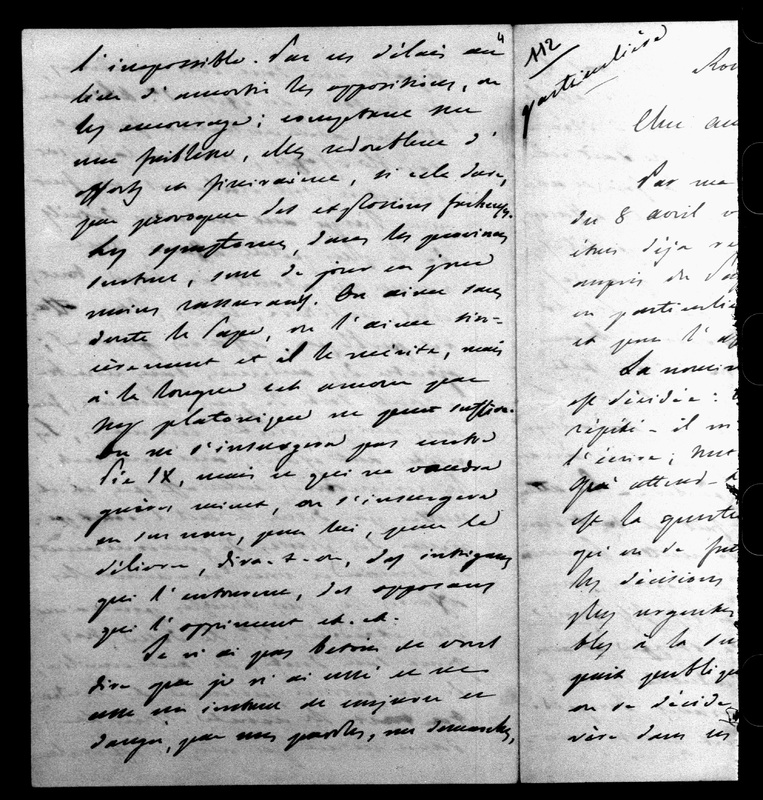 l'impossible. Par ces délais au
lieu d'amortir les oppositions, on
les encourage; comptant sur
une faiblesse, elles redoublent d'
efforts et finiraient, si cela dure,
par provoquer des explosions fâcheuses.
Les symptômes, dans les provinces
surtout, sont de jour en jour
moins rassurants. On aime sans
doute le Pape, on l'aime sin-
cèrement et il le mérite, mais
à la longue cet amour par
trop platonique ne peut suffire.
On ne s'insurgera pas contre
Pie IX, mais ce qui ne vaudra
guères mieux, on s'insurgera
en son nom, pour lui, pour le
délivrer, dira-t-on, des intrigans
qui l'entourent, des opposans
qui l'oppriment et. et.
Je n'ai pas besoin de vous
dire que je n'ai cessé et ne
cesse un instant de conjurer ce
danger, par mes paroles, mes démarches,
4
112
particulière
Par ma
du 8 avril
déjà
auprès du
en particulier
et pour l'
La
est décidée:
répété - il
l'écrire;
Qu'attend-
est la
qui en
les décisions
plus urgentes
bles à la
on se décide
dans